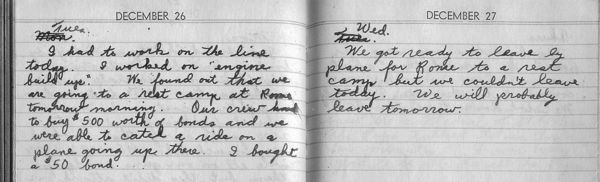 DECEMBER 26
Tues.
Mon.
I had to work on the line
today. I worked on "engine
build up". We found out that we
are going to a rest camp at Rome
tomorrow morning. Our crew had
to buy $500 worth of bonds and we
were able to catch a ride on a
plane going up there. I bought
a $50 bond.
DECEMBER 27
Wed.
Tues.
We got ready to leave by
plane for Rome to a rest
camp but we couldn't leave
today. We will probably
leave tomorrow.